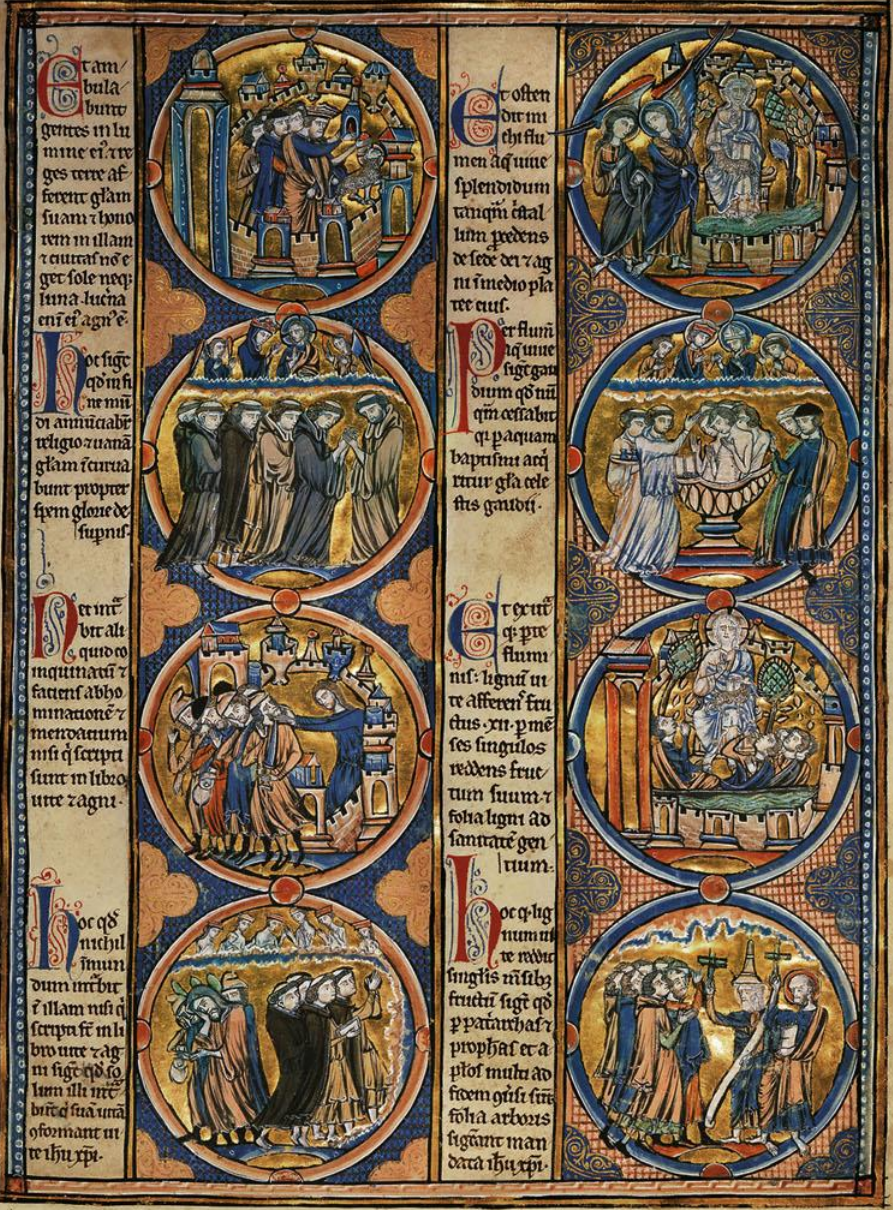 Et am
bula
bunt
gentes in lu
mine ei⁹ ⁊ re
ges terre af
ferent gl̄am
suam ⁊ hono
rem in illam
⁊ ciuitas nō e
get sole neqꝫ
luna. luc̄na
eni̅ ei⁹ agn⁹ ē.
hoc sigt̄
qd̄ in fi
ne mūi
di annūciabit̄
religio ⁊ uanā
gl̄am
bunt propter
spem glorie de
supnis.
Nec int̄
bit ali
quid co
inquinatū ⁊
faciens abho
minationē ⁊
mendatium
nisi q̄ scripti
sunt in libro
uite ⁊ agni.
hoc qd̄
nichil
īmun
dum int̄bit
ī illam nisi q̄
scripti st̄ in li
bro uite ⁊ ag
ni sigt̄ qd̄ so
lum illi int̄
būt q̄ suā uitā
ꝯformant ui
te ih̄u xp̄i.
Et osten
dit m
ichi flu
men aq̄ uiue
splendidum
tanqm̄ c̄stal
lum p̄cedens
de sede dei ⁊ ag
ni ī medio pla
tee eius.
Per flum̄
aq̄ uiue
sigt̄ gau
dium qd̄ nū
qm̄ cessabit
qꝫ p aquam
baptismi acq̄
ritur gl̄a cele
stis gaudii.
Et ex ut̄
qꝫ pte
flumi
nis. lignū ui
te afferens fru
ctus .xii. p mē
ses singulos
reddens fruc
tum suum. ⁊
folia ligni ad
sanitatē gen
tium.
hoc qꝫ lig
num ui
te reddit
singl̄is m̄sibꝫ
fructū sigt̄ qd̄
p pat̄archas ⁊
prophas et a
p̄los multi ad
fidem ꝯūsi sūt
folia arboris
sigt̄ant man
data ih̄u xp̄i.